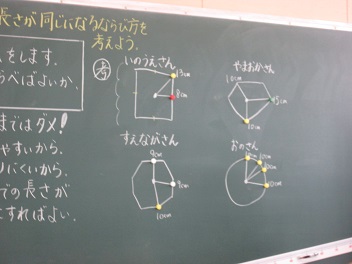 長さが同じになるならび方を
考えよう。
をします。
らべばよいか。
考
いのうえさん
13cm
9cm
やまおかさん
10cm
10cm
までではダメ!
やすいから。
りにくいから。
での長さが
にすればよい。
すえながさん
9cm
9cm
10cm
おのさん
10cm
10cm
10cm